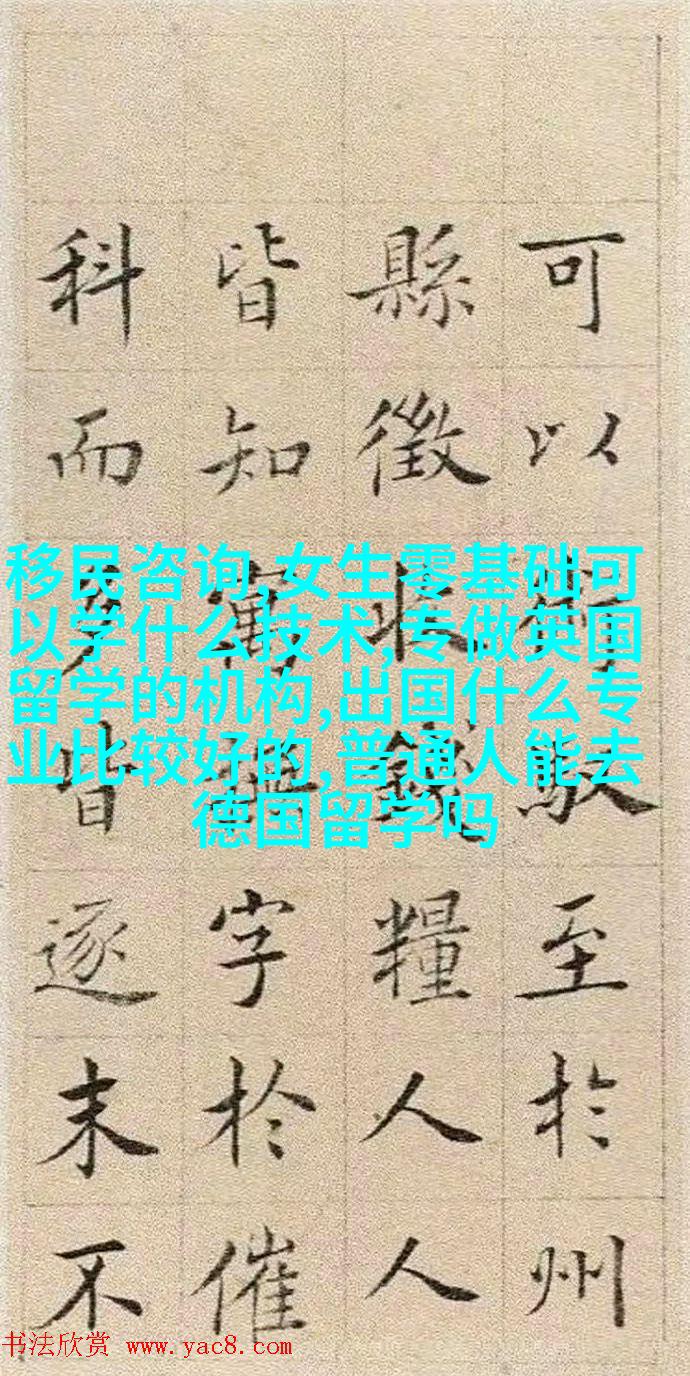 可以馭至於州
縣徵收錢糧人人
皆知寓撫字於催
科而皆逐末不
移民咨询,女生零基础可
以学什么技术,专做英国
留学的机构,出国什么专
业比较好的,普通人能去
德国留学吗
书法欣赏 www.yac8.com